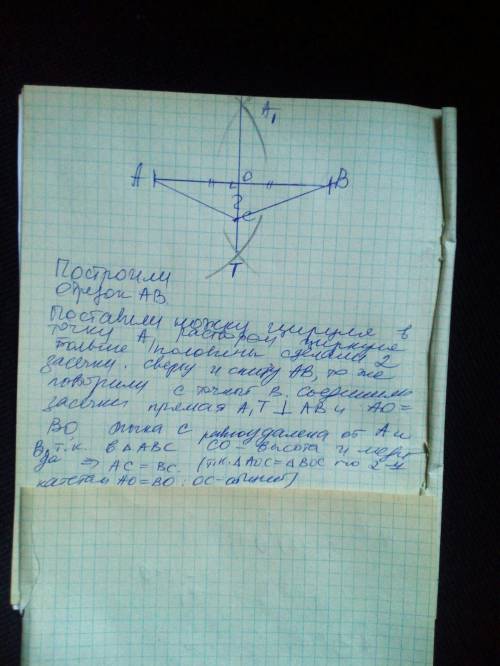 A₁
A O B
2
C
T
Построили
отрезок AB.
Поставили ножку циркуля в
точку A, раствором циркуля
больше половины сделали 2
засечки, сверху и снизу AB, то же
повторили с точкой B. Соединили
засечки прямая A₁T ⊥ AB и AO=
BO точка C равноудалена от A и
B, т.к. в △ABC CO высота и меди
да ⇒ AC = BC. (т.к. △AOC=△BOC по 2-м
катетам AO=BO; OC-общий)